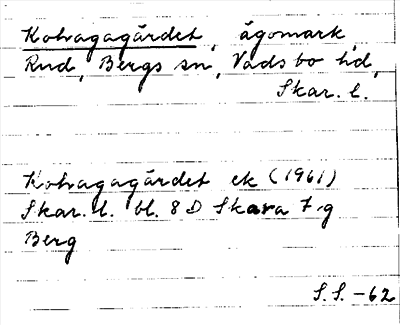 Kohagagärdet, ägomark,
Rud, Bergs sn, Vadsbo hd,
Skar. l.
Kohagagärdet ek (1961)
Skar. l. bl. 8 D Skara 7. g
Berg
S. S. -62